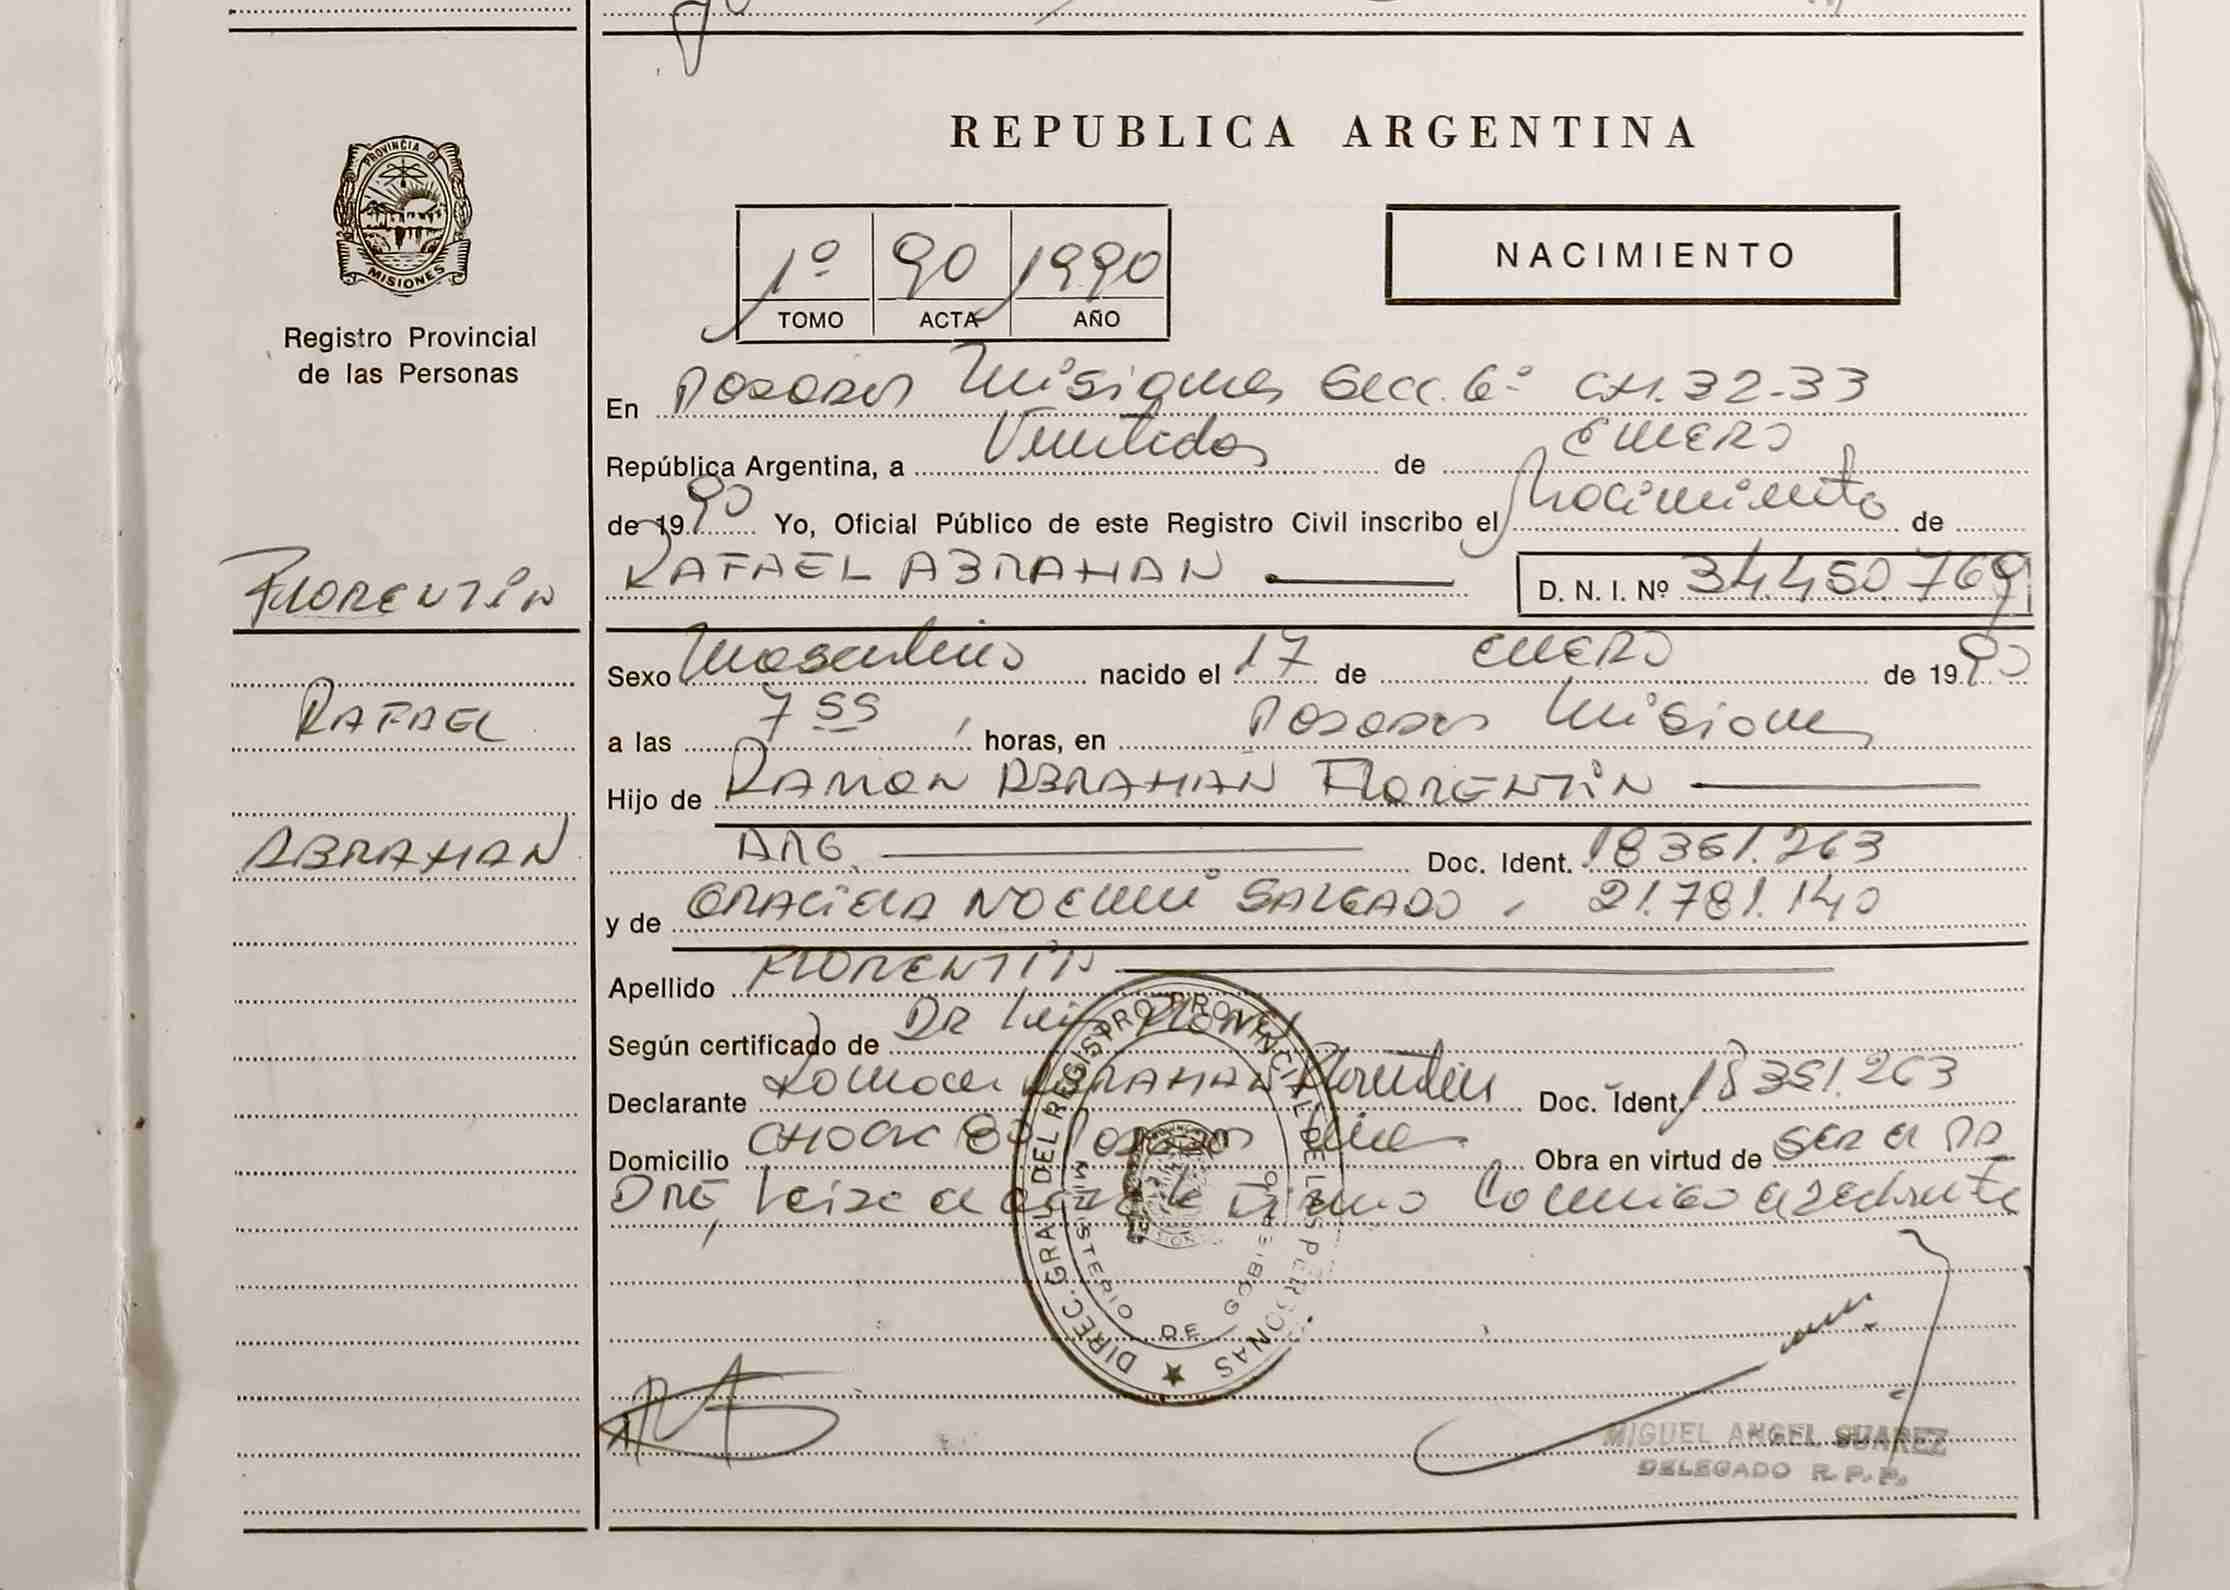 REPUBLICA ARGENTINA
PROVINCIA DE
MISIONES
Registro Provincial
de las Personas
1º 90 1990
TOMO ACTA AÑO
NACIMIENTO
En Posadas Misiones Secc. 6º CH. 32-33
República Argentina, a Veintidos de ENERO
de 1990 Yo, Oficial Público de este Registro Civil inscribo el Nacimiento de
RAFAEL ABRAHAN D. N. I. Nº 34.450.769
FLORENTIN
RAFAEL
ABRAHAN
Sexo Masculino nacido el 17 de ENERO de 1990
a las 7 55 horas, en Posadas Misiones
Hijo de RAMON ABRAHAN FLORENTIN
ARG. Doc. Ident. 18361.263
y de GRACIELA NOEMI SALGADO, 21.781.140
Apellido FLORENTIN
Según certificado de DR Luis
Declarante Ramon ABRAHAN Florentin Doc. Ident. 18351.263
Domicilio CHACRA 80 Posadas Mnes Obra en virtud de SER el PA
DRE, Leida el acta la firmo Conmigo el declarante
DIREC. GRAL. DEL REGISTRO PROVINCIAL DE LAS PERSONAS
MINISTERIO DE GOBIERNO
MIGUEL ANGEL SUAREZ
DELEGADO R. P. P.